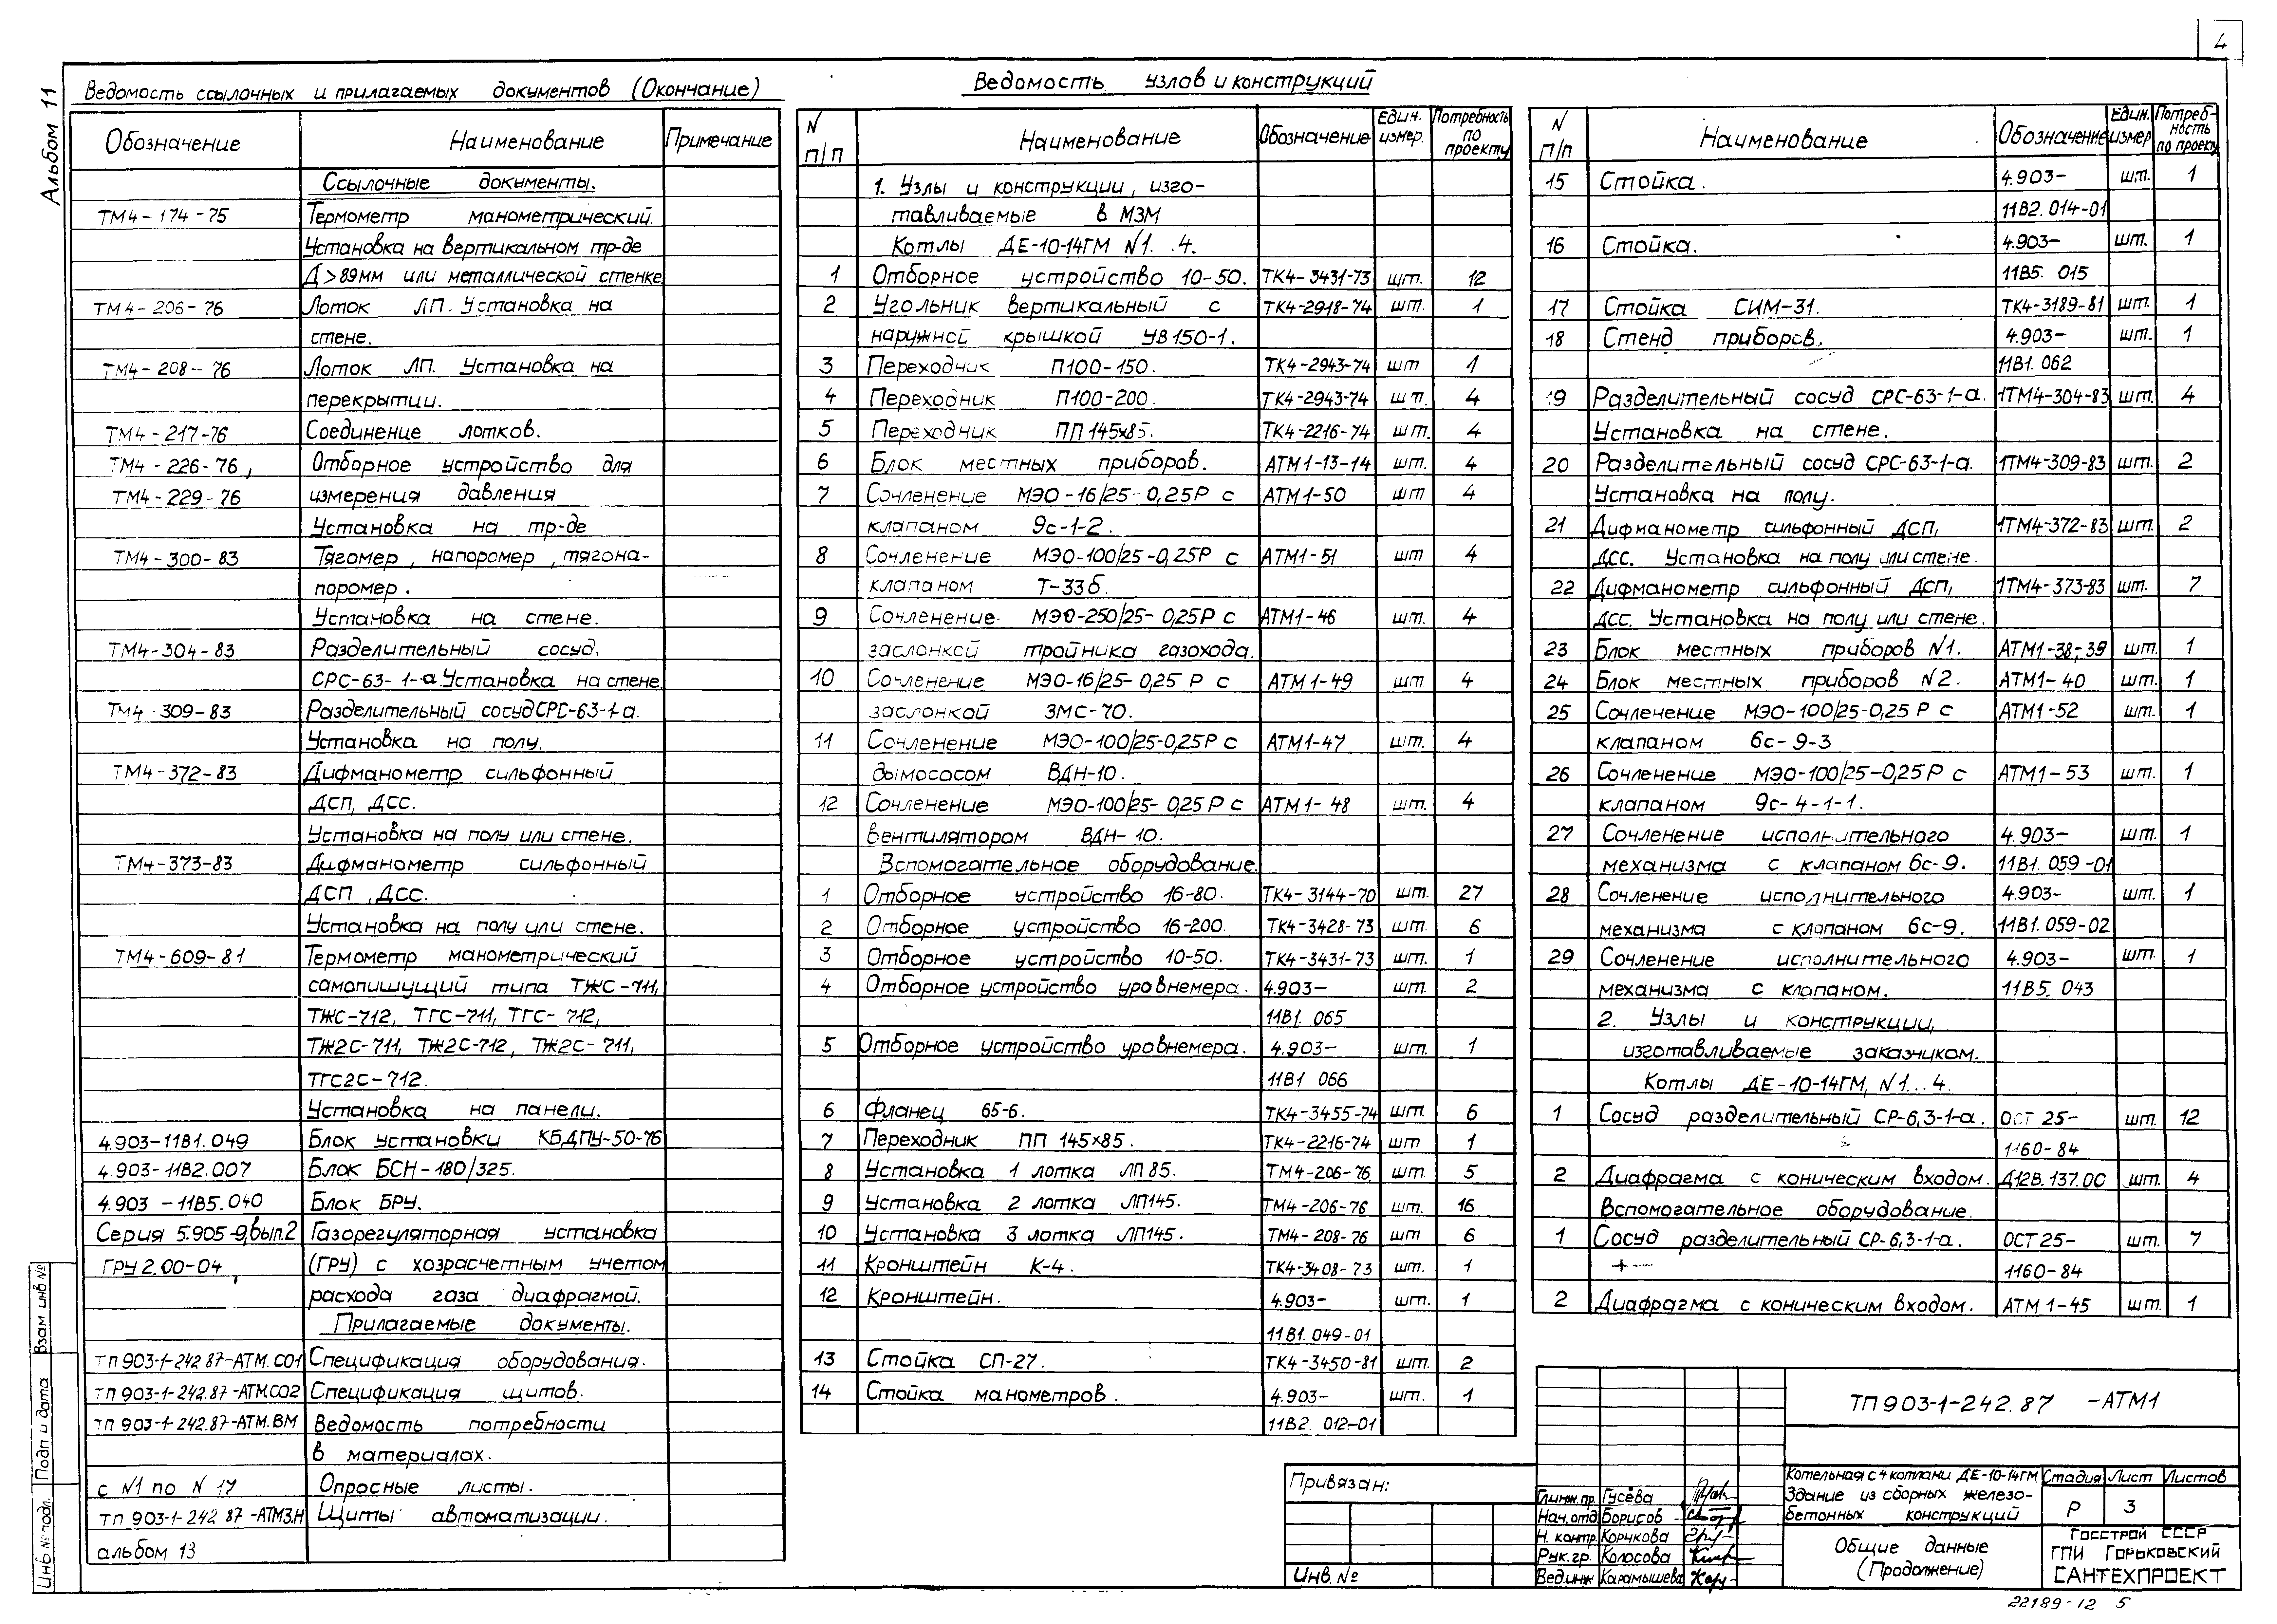 4
Альбом 11
Ведомость ссылочных и прилагаемых документов (Окончание)
Обозначение Наименование Примечание
Ссылочные документы.
ТМ4-174-75 Термометр манометрический.
Установка на вертикальном тр-де
Д>89мм или металлической стенке
ТМ4-206-76 Лоток ЛП. Установка на
стене.
ТМ4-208-76 Лоток ЛП. Установка на
перекрытии.
ТМ4-217-76 Соединение лотков.
ТМ4-226-76, Отборное устройство для
ТМ4-229-76 измерения давления
Установка на тр-де
ТМ4-300-83 Тягомер, напоромер, тягона-
поромер.
Установка на стене.
ТМ4-304-83 Разделительный сосуд.
СРС-63-1-а. Установка на стене.
ТМ4-309-83 Разделительный сосуд СРС-63-1-а.
Установка на полу.
ТМ4-372-83 Дифманометр сильфонный
ДСП, ДСС.
Установка на полу или стене.
ТМ4-373-83 Дифманометр сильфонный
ДСП, ДСС.
Установка на полу или стене.
ТМ4-609-81 Термометр манометрический
самопишущий типа ТЖС-711,
ТЖС-712, ТГС-711, ТГС-712,
ТЖ2С-711, ТЖ2С-712, ТЖ2С-711,
ТГС2С-712.
Установка на панели.
4.903-11В1.049 Блок установки КБДПУ-50-76
4.903-11В2.007 Блок БСН-180/325.
4.903-11В5.040 Блок БРУ.
Серия 5.905-9, вып.2 Газорегуляторная установка
ГРУ 2.00-04 (ГРУ) с хозрасчетным учетом
расхода газа диафрагмой.
Прилагаемые документы.
ТП 903-1-242.87-АТМ.СО1 Спецификация оборудования.
ТП 903-1-242.87-АТМ.СО2 Спецификация щитов.
ТП 903-1-242.87-АТМ.ВМ Ведомость потребности
в материалах.
с N1 по N 17 Опросные листы.
ТП 903-1-242 87-АТМ3.Н Щиты автоматизации.
альбом 13
Ведомость узлов и конструкций
N п/п Наименование Обозначение Един. измер. Потребность по проекту
1. Узлы и конструкции, изго-
тавливаемые в МЗМ
Котлы ДЕ-10-14ГМ N1. .4.
1 Отборное устройство 10-50. ТК4-3431-73 шт. 12
2 Угольник вертикальный с ТК4-2918-74 шт. 1
наружной крышкой УВ150-1.
3 Переходник П100-150. ТК4-2943-74 шт 1
4 Переходник П100-200. ТК4-2943-74 шт. 4
5 Переходник ПП 145х85. ТК4-2216-74 шт. 4
6 Блок местных приборов. АТМ1-13-14 шт. 4
7 Сочленение МЭО-16/25-0,25Р с АТМ1-50 шт 4
клапаном 9с-1-2.
8 Сочленение МЭО-100/25-0,25Р с АТМ1-51 шт 4
клапаном Т-33б.
9 Сочленение МЭО-250/25-0,25Р с АТМ1-46 шт. 4
заслонкой тройника газохода.
10 Сочленение МЭО-16/25-0,25 Р с АТМ1-49 шт. 4
заслонкой ЗМС-70.
11 Сочленение МЭО-100/25-0,25Р с АТМ1-47 шт. 4
дымососом ВДН-10.
12 Сочленение МЭО-100/25-0,25Р с АТМ1-48 шт. 4
вентилятором ВДН-10.
Вспомогательное оборудование.
1 Отборное устройство 16-80. ТК4-3144-70 шт. 27
2 Отборное устройство 16-200. ТК4-3428-73 шт. 6
3 Отборное устройство 10-50. ТК4-3431-73 шт. 1
4 Отборное устройство уровнемера. 4.903- шт. 2
11В1.065
5 Отборное устройство уровнемера. 4.903- шт. 1
11В1 066
6 Фланец 65-6. ТК4-3455-74 шт. 6
7 Переходник ПП 145×85. ТК4-2216-74 шт 1
8 Установка 1 лотка ЛП85. ТМ4-206-76 шт. 5
9 Установка 2 лотка ЛП145. ТМ4-206-76 шт. 16
10 Установка 3 лотка ЛП145. ТМ4-208-76 шт 6
11 Кронштейн К-4. ТК4-3408-73 шт. 1
12 Кронштейн. 4.903- шт. 1
11В1.049-01
13 Стойка СП-27. ТК4-3450-81 шт. 2
14 Стойка манометров. 4.903- шт. 1
11В2. 012-01
N п/п Наименование Обозначение Един. измер Потреб-ность по проекту
15 Стойка. 4.903- шт. 1
11В2.014-01
16 Стойка. 4.903- шт. 1
11В5. 015
17 Стойка СИМ-31. ТК4-3189-81 шт. 1
18 Стенд приборов. 4.903- шт. 1
11В1.062
19 Разделительный сосуд СРС-63-1-а. 1ТМ4-304-83 шт. 4
Установка на стене.
20 Разделительный сосуд СРС-63-1-а. 1ТМ4-309-83 шт. 2
Установка на полу.
21 Дифманометр сильфонный ДСП, 1ТМ4-372-83 шт. 2
ДСС. Установка на полу или стене.
22 Дифманометр сильфонный ДСП, 1ТМ4-373-83 шт. 7
ДСС. Установка на полу или стене.
23 Блок местных приборов N1. АТМ1-38,-39 шт. 1
24 Блок местных приборов N2. АТМ1-40 шт. 1
25 Сочленение МЭО-100/25-0,25 Р с АТМ1-52 шт. 1
клапаном 6с-9-3
26 Сочленение МЭО-100/25-0,25Р с АТМ1-53 шт. 1
клапаном 9с-4-1-1.
27 Сочленение исполнительного 4.903- шт. 1
механизма с клапаном 6с-9. 11В1.059-01
28 Сочленение исполнительного 4.903- шт. 1
механизма с клапаном 6с-9. 11В1.059-02
29 Сочленение исполнительного 4.903- шт. 1
механизма с клапаном. 11В5. 043
2. Узлы и конструкции,
изготавливаемые заказчиком.
Котлы ДЕ-10-14ГМ, N1...4.
1 Сосуд разделительный СР-6,3-1-а. ОСТ 25- шт. 12
1160-84
2 Диафрагма с коническим входом. Д12В.137.00 шт. 4
Вспомогательное оборудование.
1 Сосуд разделительный СР-6,3-1-а. ОСТ 25- шт. 7
1160-84
2 Диафрагма с коническим входом. АТМ1-45 шт. 1
ТП 903-1-242.87 -АТМ1
Привязан:
Инв. №
Гл.инж.пр. Гусева
Нач.отд. Борисов
Н. контр. Корчкова
Рук.гр. Колосова
Вед.инж Карамышева
Котельная с 4 котлами ДЕ-10-14ГМ
Здание из сборных железо-
бетонных конструкций
Стадия Лист Листов
Р 3
Общие данные
(Продолжение)
Госстрой СССР
ГПИ Горьковский
САНТЕХПРОЕКТ
Взам инв №
Подп и дата
Инв № подл.
22189-12 5